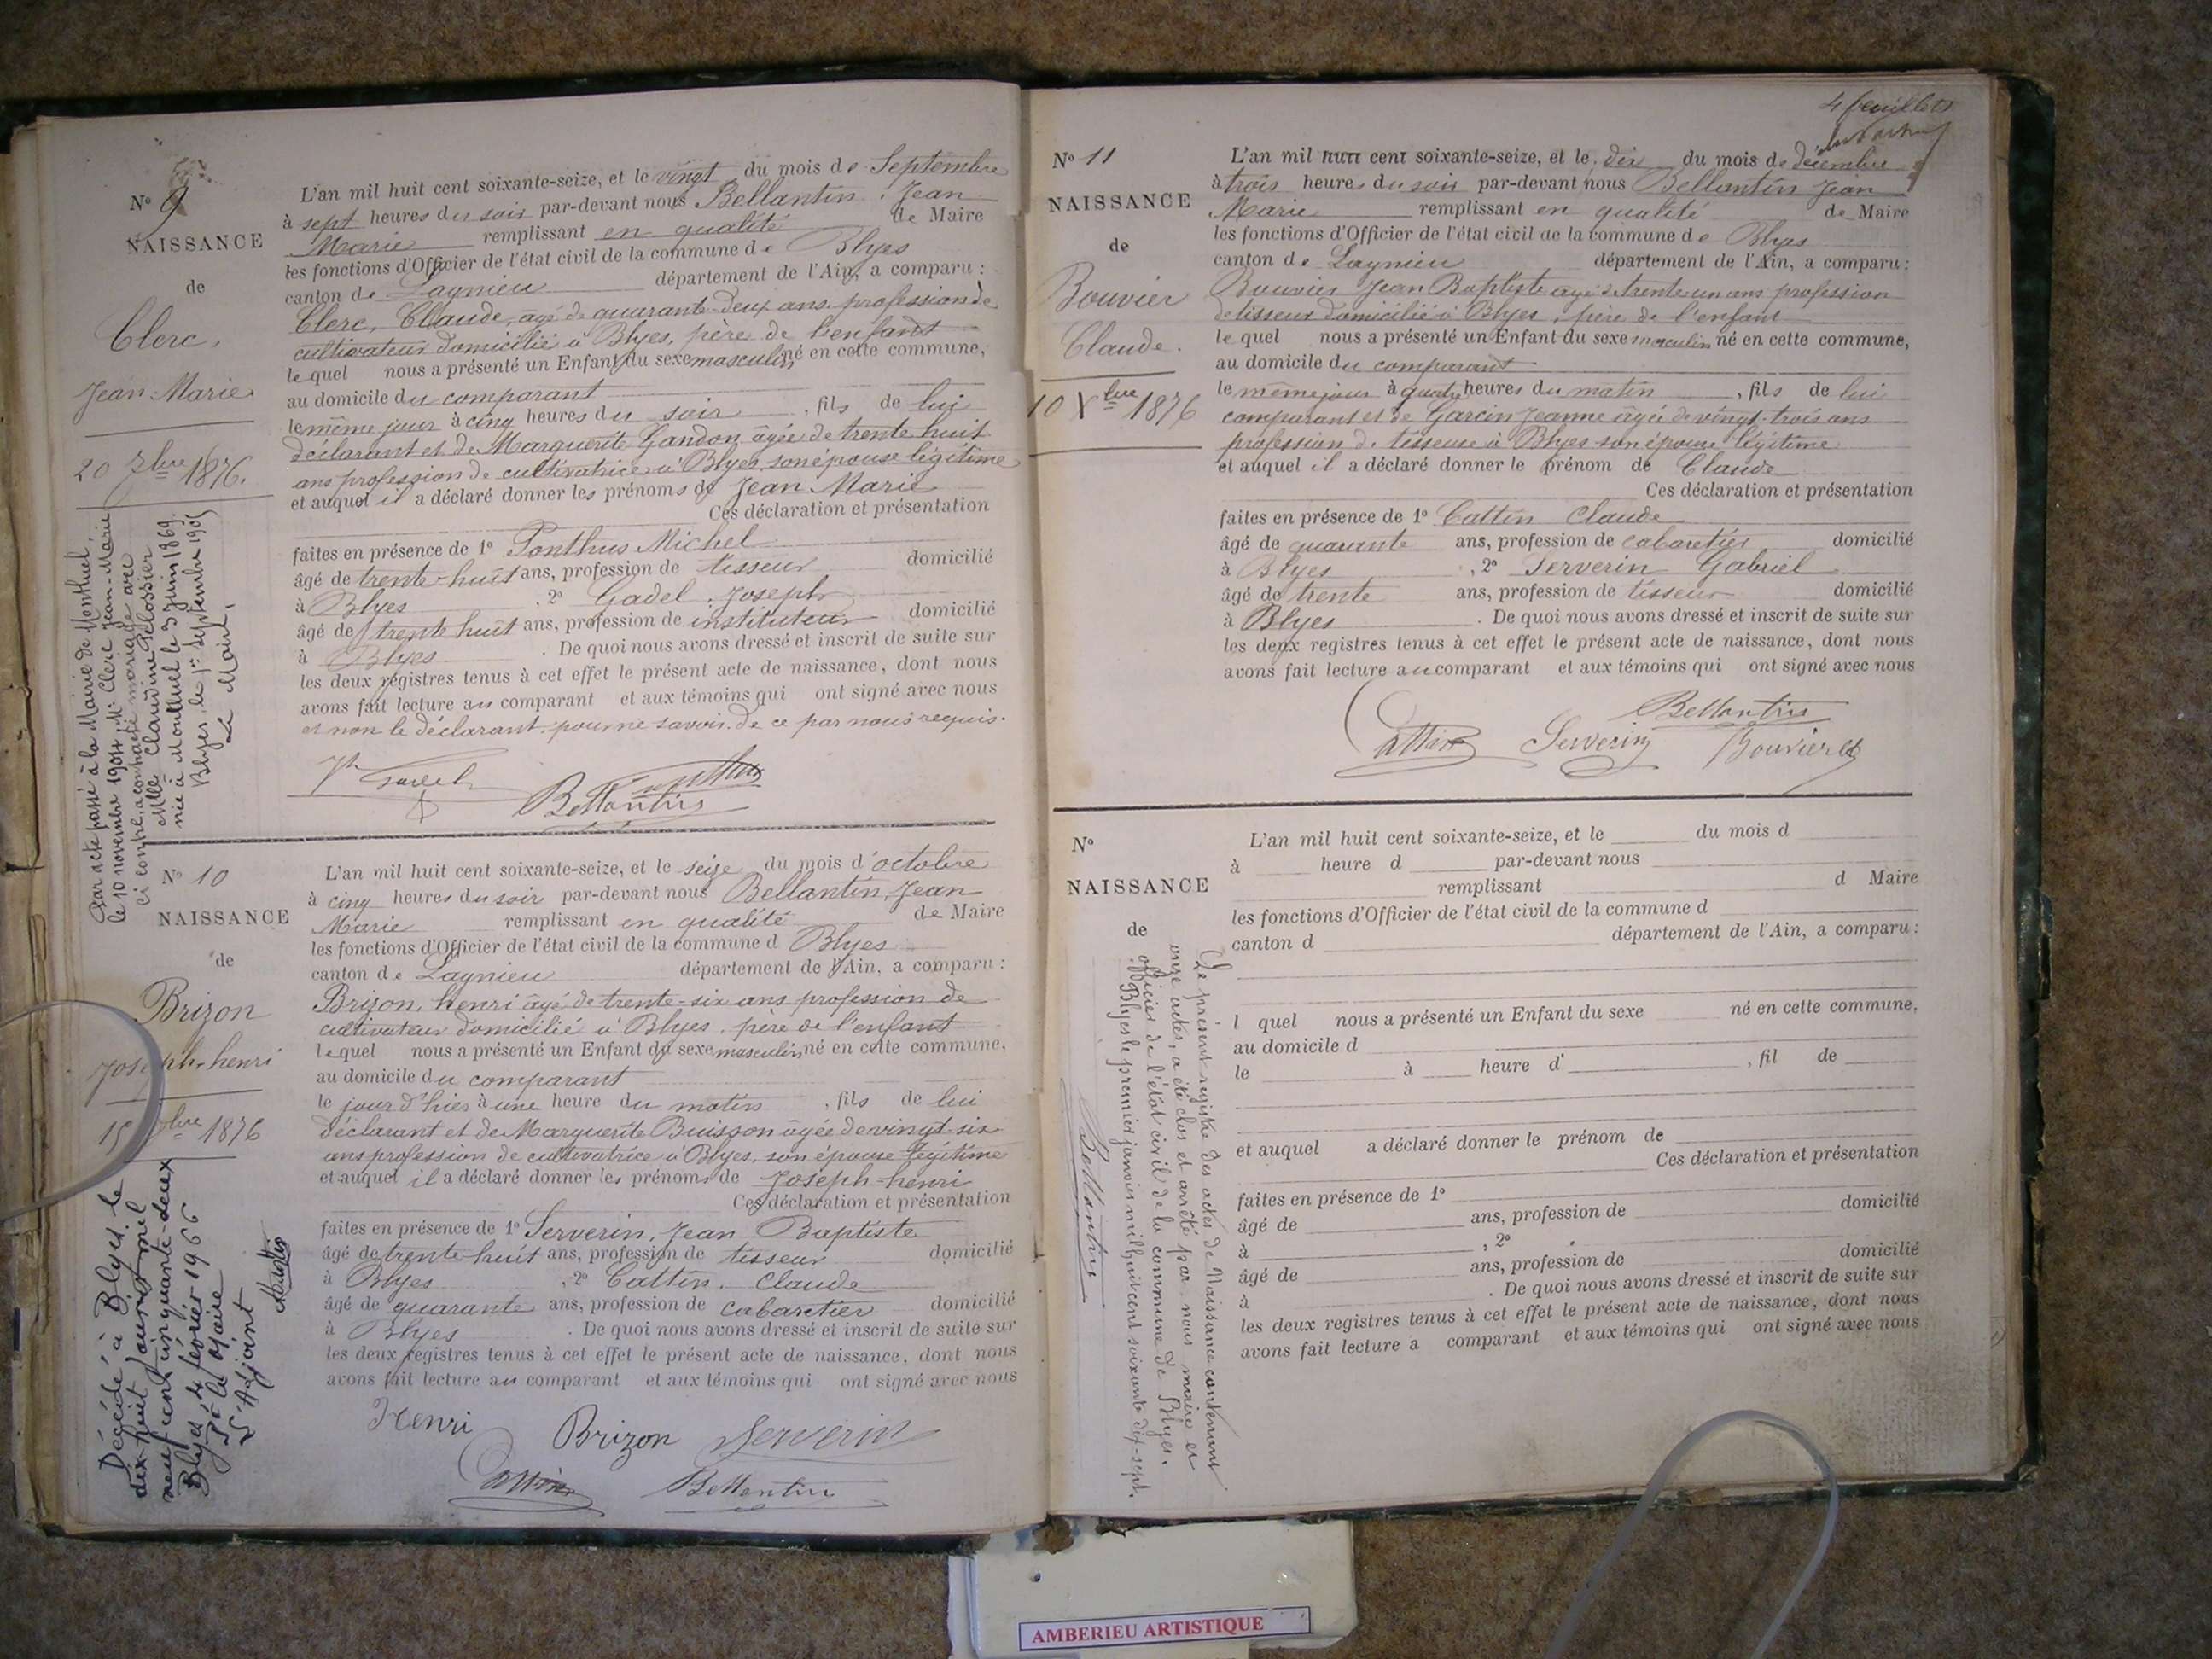 Nº 9
NAISSANCE
de
Clerc,
Jean-Marie
20 7bre 1876.
Par acte passé à la Mairie de Montluel,
le 10 novembre 1904, Mr Clerc Jean-Marie
ci contre, a contracté mariage avec
Mlle Claudine Pelossier
née à Montluel le 3 juin 1869.
Blyes le 1er septembre 1905
Le Maire,
L'an mil huit cent soixante-seize, et le vingt du mois de Septembre
à sept heures du soir par-devant nous Bellantin, Jean
Marie remplissant en qualité de Maire
les fonctions d'Officier de l'état civil de la commune de Blyes
canton de Lagnieu département de l'Ain, a comparu :
Clerc, Claude, âgé de quarante-deux ans profession de
cultivateur domicilié à Blyes, père de l'enfant
lequel nous a présenté un Enfant du sexe masculin né en cette commune,
au domicile du comparant
le même jour à cinq heures du soir , fils de lui
déclarant et de Marguerite Gandon, âgée de trente huit
ans profession de cultivatrice à Blyes, son épouse légitime
et auquel il a déclaré donner les prénoms de Jean Marie
Ces déclaration et présentation
faites en présence de 1º Ponthus Michel
âgé de trente-huit ans, profession de tisseur domicilié
à Blyes , 2º Gadel, Joseph
âgé de trente huit ans, profession de instituteur domicilié
à Blyes . De quoi nous avons dressé et inscrit de suite sur
les deux registres tenus à cet effet le présent acte de naissance, dont nous
avons fait lecture au comparant et aux témoins qui ont signé avec nous
et non le déclarant pour ne savoir, de ce par nous requis.
Bellantin
Nº 10
NAISSANCE
de
Brizon
Joseph-henri
15 8bre 1876
Décédé à Blyes le
dix huit janvier mil
neuf cent cinquante-deux
Blyes 4 février 1966
Pr le Maire
L'Adjoint
L'an mil huit cent soixante-seize, et le seize du mois d'octobre
à cinq heures du soir par-devant nous Bellantin, Jean
Marie remplissant en qualité de Maire
les fonctions d'Officier de l'état civil de la commune d Blyes
canton de Lagnieu département de l'Ain, a comparu :
Brizon, henri âgé de trente-six ans profession de
cultivateur domicilié à Blyes, père de l'enfant
lequel nous a présenté un Enfant du sexe masculin né en cette commune,
au domicile du comparant
le jour d'hier à une heure du matin , fils de lui
déclarant et de Marguerite Buisson âgée de vingt-six
ans profession de cultivatrice à Blyes, son épouse légitime
et auquel il a déclaré donner les prénoms de Joseph-henri
Ces déclaration et présentation
faites en présence de 1º Serverin, Jean Baptiste
âgé de trente-huit ans, profession de tisseur domicilié
à Blyes , 2º Cattin, Claude
âgé de quarante ans, profession de cabaretier domicilié
à Blyes . De quoi nous avons dressé et inscrit de suite sur
les deux registres tenus à cet effet le présent acte de naissance, dont nous
avons fait lecture au comparant et aux témoins qui ont signé avec nous
Henri Brizon Serverin
Cattin Bellantin
4 feuillets
Nº 11
NAISSANCE
de
Bouvier
Claude.
10 Xbre 1876
L'an mil huit cent soixante-seize, et le dix du mois de décembre
à trois heures du soir par-devant nous Bellantin Jean
Marie remplissant en qualité de Maire
les fonctions d'Officier de l'état civil de la commune de Blyes
canton de Lagnieu département de l'Ain, a comparu :
Bouvier Jean Baptiste âgé de trente un ans profession
de tisseur domicilié à Blyes, père de l'enfant
lequel nous a présenté un Enfant du sexe masculin né en cette commune,
au domicile du comparant
le même jour à quatre heures du matin , fils de lui
comparant et de Garcin Jeanne âgée de vingt-trois ans
profession de tisseuse à Blyes son épouse légitime
et auquel il a déclaré donner le prénom de Claude
Ces déclaration et présentation
faites en présence de 1º Cattin Claude
âgé de quarante ans, profession de cabaretier domicilié
à Blyes , 2º Serverin Gabriel
âgé de trente ans, profession de tisseur domicilié
à Blyes . De quoi nous avons dressé et inscrit de suite sur
les deux registres tenus à cet effet le présent acte de naissance, dont nous
avons fait lecture au comparant et aux témoins qui ont signé avec nous
Bellantin
Cattin Serverin Bouvier
Nº
NAISSANCE
de
Le présent registre des actes de Naissance contenant
onze actes, a été clos et arrêté par nous maire et
officier de l'état civil de la commune de Blyes.
Blyes le premier janvier mil huit cent soixante dix-sept.
Bellantin
L'an mil huit cent soixante-seize, et le du mois d
à heure d par-devant nous
remplissant d Maire
les fonctions d'Officier de l'état civil de la commune d
canton d département de l'Ain, a comparu :
l quel nous a présenté un Enfant du sexe né en cette commune,
au domicile d
le à heure d , fil de
et auquel a déclaré donner le prénom de
Ces déclaration et présentation
faites en présence de 1º
âgé de ans, profession de domicilié
à , 2º
âgé de ans, profession de domicilié
à . De quoi nous avons dressé et inscrit de suite sur
les deux registres tenus à cet effet le présent acte de naissance, dont nous
avons fait lecture a comparant et aux témoins qui ont signé avec nous
AMBERIEU ARTISTIQUE